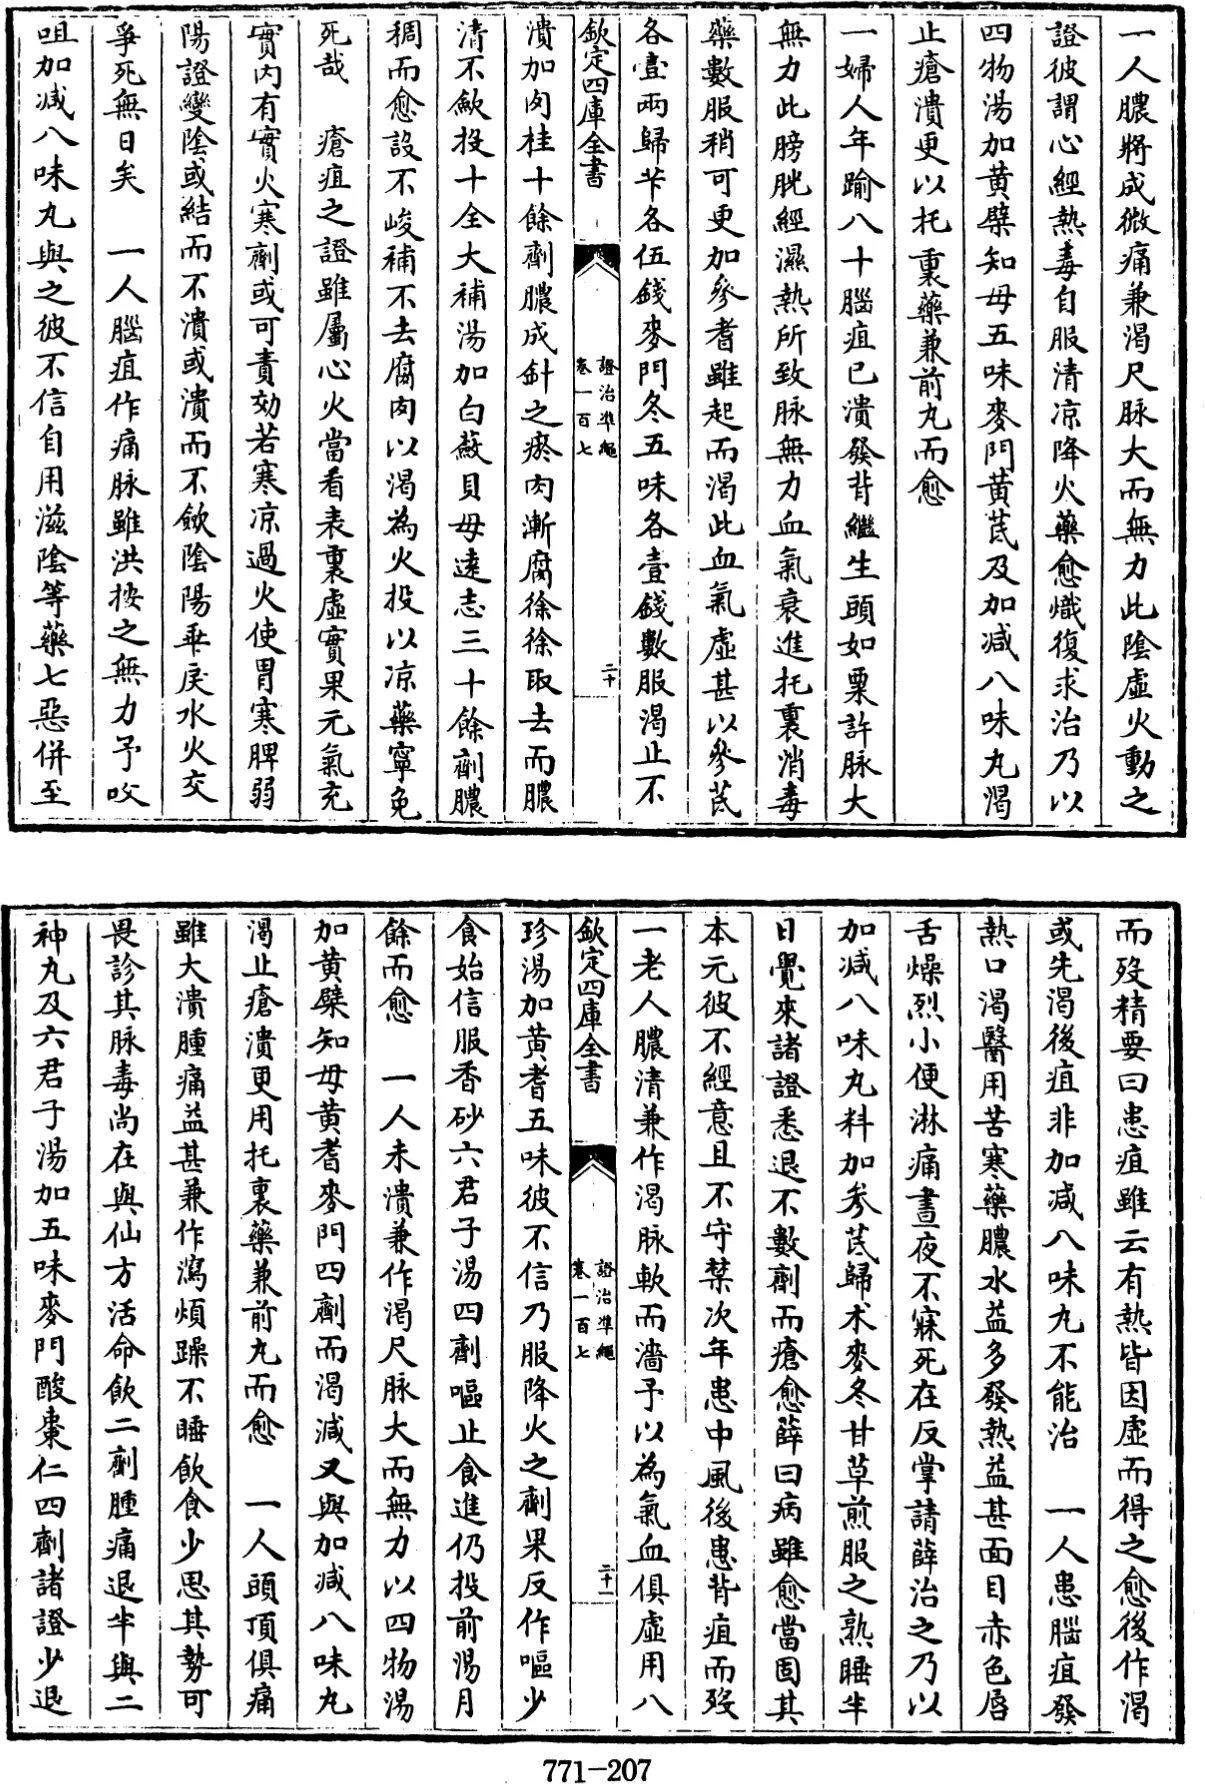 一人膿將成微痛兼渴尺脉大而無力此隂虛火動之
證彼謂心經熱毒自服清凉降火藥愈熾復求治乃以
四物湯加黄檗知母五味麥門黄芪及加减八味丸渴
止瘡潰更以托裏藥兼前丸而愈
一婦人年踰八十腦疽已潰發背繼生頭如粟許脉大
無力此膀胱經濕熱所致脉無力血氣衰進托裏消毒
藥數服稍可更加參耆雖起而渴此血氣虛甚以參芪
各壹兩歸芐各伍錢麥門冬五味各壹錢數服渴止不
欽定四庫全書
證治準繩
卷一百七
二十
潰加肉桂十餘劑膿成針之瘀肉漸腐徐徐取去而膿
清不歛投十全大補湯加白蘞貝母逺志三十餘劑膿
稠而愈設不峻補不去腐肉以渴為火投以凉藥寧免
死哉 瘡疽之證雖屬心火當看表裏虛實果元氣充
實内有實火寒劑或可責効若寒凉過火使胃寒脾弱
陽證變隂或結而不潰或潰而不歛隂陽乖戾水火交
爭死無日矣 一人腦疽作痛脉雖洪按之無力予㕮
咀加减八味丸與之彼不信自用滋隂等藥七惡併至
而歿精要曰患疽雖云有熱皆因虛而得之愈後作渴
或先渴後疽非加减八味丸不能治 一人患腦疽發
熱口渴醫用苦寒藥膿水益多發熱益甚面目赤色唇
舌燥烈小便淋痛晝夜不寐死在反掌請薛治之乃以
加减八味丸料加參芪歸术麥冬甘草煎服之熟睡半
日覺來諸證悉退不數劑而瘡愈薛曰病雖愈當固其
本元彼不經意且不守禁次年患中風後患背疽而歿
一老人膿清兼作渴脉軟而濇予以為氣血俱虛用八
欽定四庫全書
證治準繩
卷一百七
二十一
珍湯加黄耆五味彼不信乃服降火之劑果反作嘔少
食始信服香砂六君子湯四劑嘔止食進仍投前湯月
餘而愈 一人未潰兼作渴尺脉大而無力以四物湯
加黄檗知母黄耆麥門四劑而渴减又與加减八味丸
渴止瘡潰更用托裏藥兼前丸而愈 一人頭項俱痛
雖大潰腫痛益甚兼作瀉煩躁不睡飲食少思其勢可
畏診其脉毒尚在與仙方活命飲二劑腫痛退半與二
神丸及六君子湯加五味麥門酸棗仁四劑諸證少退
771-207